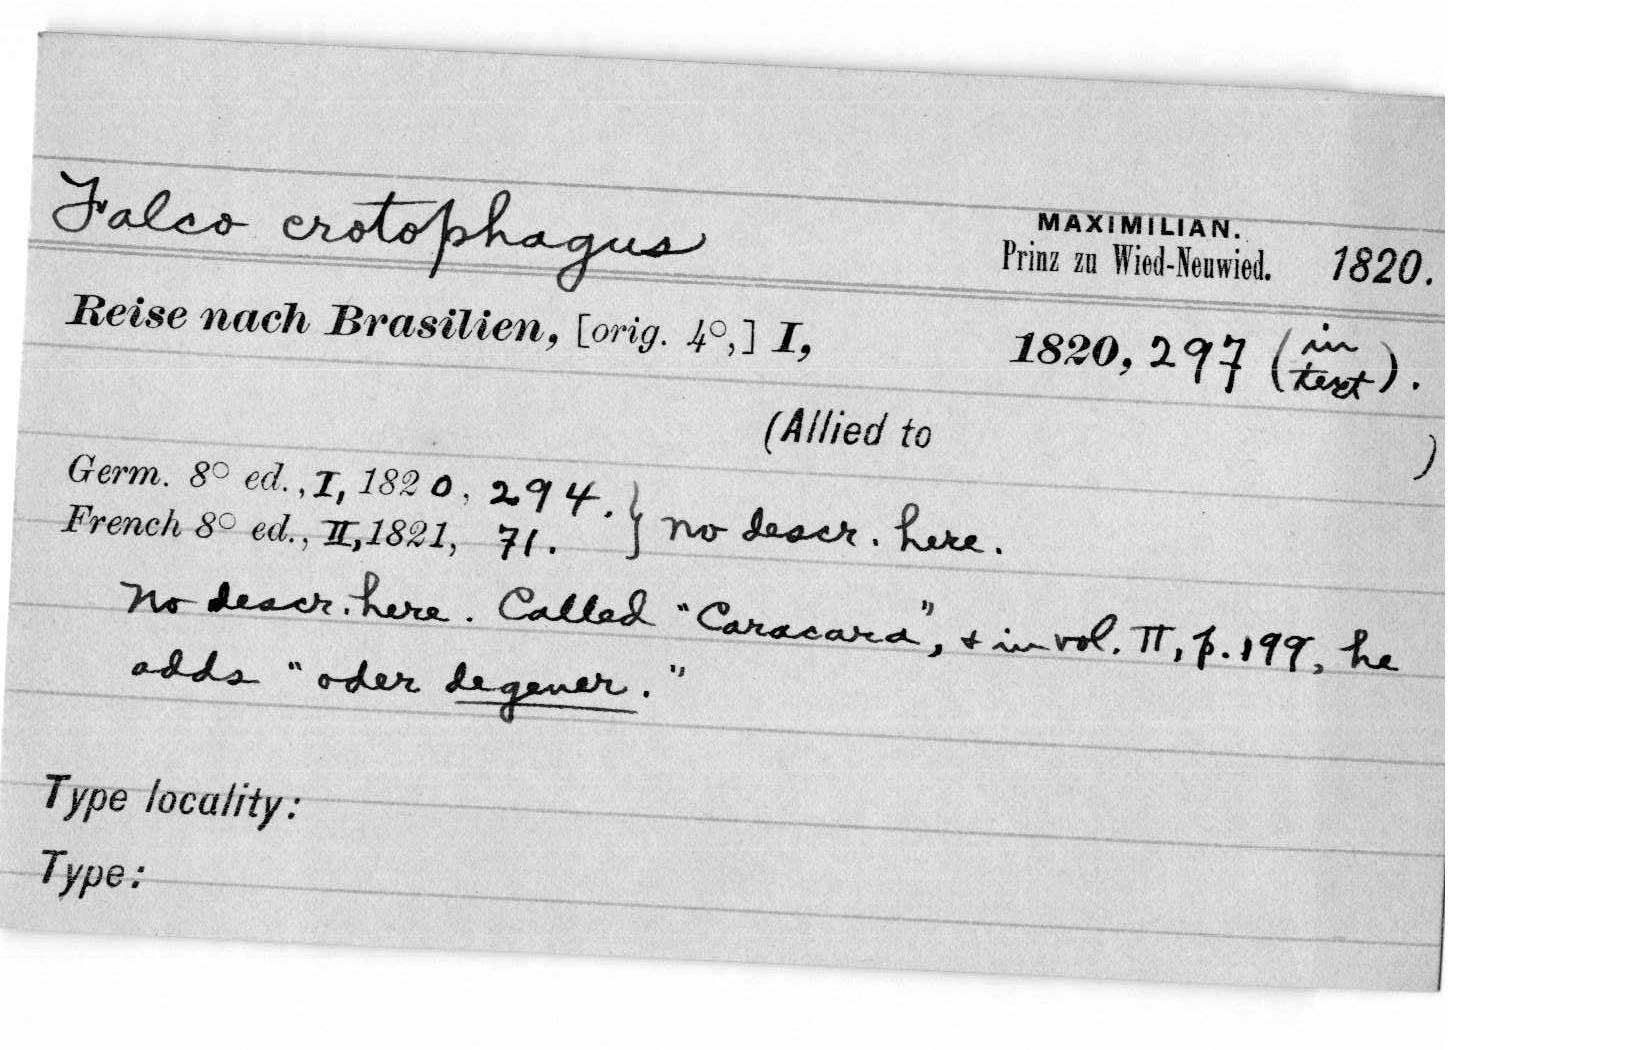 Falco crotophagus MAXIMILIAN.
Prinz zu Wied-Neuwied. 1820.
Reise nach Brasilien, [orig. 4°,] I, 1820, 297 (in text).
(Allied to )
Germ. 8° ed., I, 1820, 294.
French 8° ed., II, 1821, 71. } no descr. here.
No descr. here. Called "Caracara", & in vol. II, p. 199, he
adds "oder degener."
Type locality:
Type: